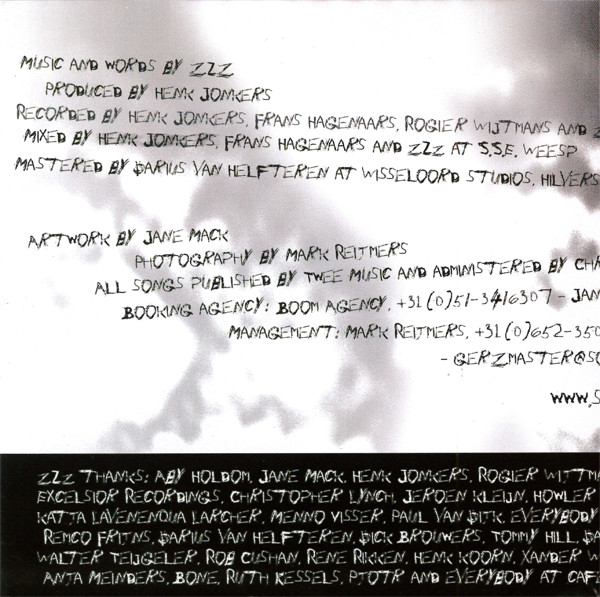 MUSIC AND WORDS BY ZZZ
PRODUCED BY HENK JONKERS
RECORDED BY HENK JONKERS, FRANS HAGENAARS, ROGIER WIJTMANS AND Z
MIXED BY HENK JONKERS, FRANS HAGENAARS AND ZZZ AT S.S.E, WEESP
MASTERED BY DARIUS VAN HELFTEREN AT WISSELOORD STUDIOS, HILVERS
ARTWORK BY JANE MACK
PHOTOGRAPHY BY MARK REITMERS
ALL SONGS PUBLISHED BY TWEE MUSIC AND ADMINISTERED BY CHR
BOOKING AGENCY: BOOM AGENCY, +31(0)51-3416307 - JAN
MANAGEMENT: MARK REITMERS, +31(0)652-350
- GERZMASTER@SO
WWW.S
ZZZ THANKS: ABY HOLDOM, JANE MACK, HENK JONKERS, ROGIER WITTMA
EXCELSIOR RECORDINGS, CHRISTOPHER LYNCH, JEROEN KLEIJN, HOWLER
KATJA LARCHER, MENNO VISSER, PAUL VAN DIJK, EVERYBODY
REMCO FRIJNS, DARIUS VAN HELFTEREN, DICK BROUWERS, TOMMY HILL, DA
WALTER TEIJGELER, ROB CUSHAN, RENE RIKKEN, HENK KOORN, XANDER W
ANJA MEINDERS, BONE, RUTH KESSELS, PJOTR AND EVERYBODY AT CAFE